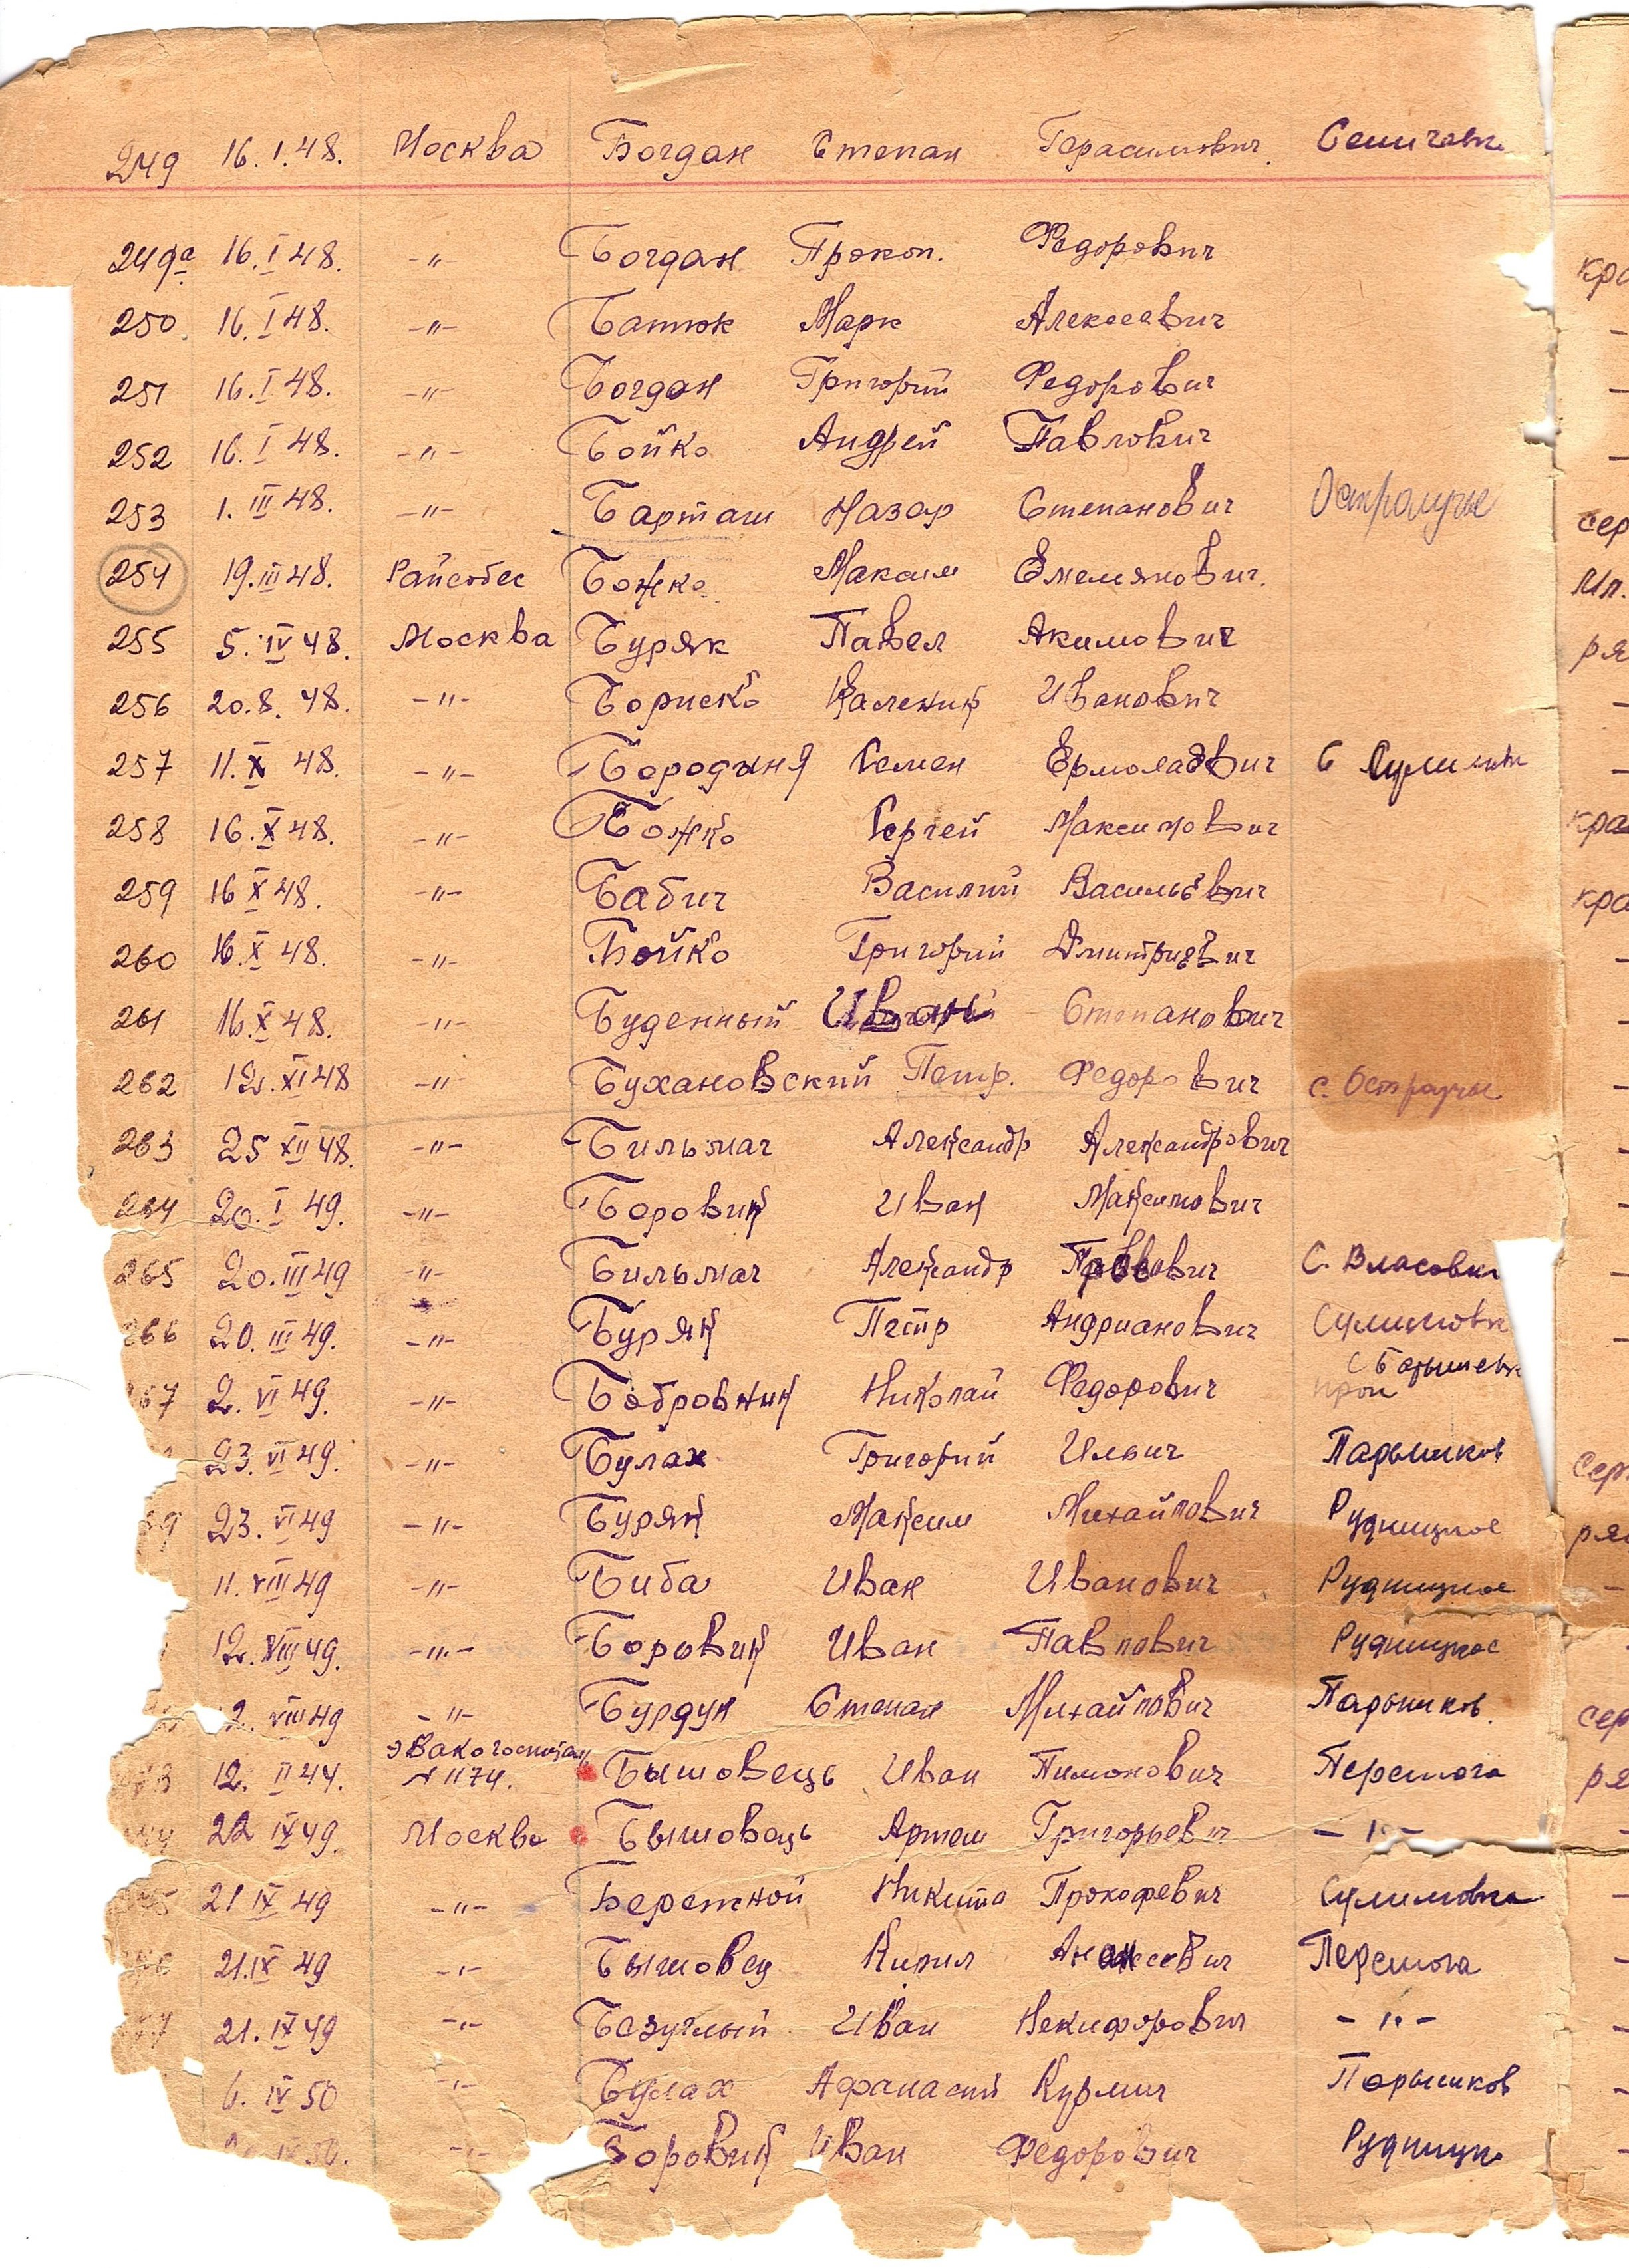 249 16.I.48. Москва Богдан Степан Герасимович. Семичевка
249а 16.I 48. -"- Богдан Прокоп. Федорович
кра
250. 16.I 48. -"- Батюк Марк Алексеевич
251 16.I 48. -"- Богдан Григорий Федорович
252 16.I 48. -"- Бойко Андрей Павлович
253 1.III 48. -"- Барташ Назар Степанович
сер
254 19.III 48. Райсобес Божко Максим Емелянович.
Мл.
255 5.IV 48. Москва Буряк Павел Акимович
ря
256 20.8. 48. -"- Бориско Каленик Иванович
257 11.X 48. -"- Бородиня Семен Ермолаевич С
258 16.X 48. -"- Божко Сергей Максимович
кра
259 16 X 48. -"- Бабич Василий Васильевич
кра
260 16.X 48. -"- Бойко Григорий Дмитриевич
261 16.X 48. -"- Буденный Иван Степанович
262 12.XI 48 -"- Бухановский Петр. Федорович с.
263 25 XII 48. -"- Бильмач Александр Александрович
264 20.I 49. -"- Боровик Иван Максимович
265 20.III 49 -"- Бильмач Александр С. Власовка
266 20.III 49. -"- Буряк Петр Андрианович Сулимовка
67 2.VI 49. -"- Бобровник Николай Федорович
23.VI 49. -"- Булах Григорий Ильич Парышков
сер
69 23.VI 49 -"- Буряк Максим Михайлович Рудницкое
ря
11.VIII 49 -"- Биба Иван Иванович Рудницкое
12.VIII 49. -"- Боровик Иван Павлович Рудницкое
2.VIII 49 -"- Бурдун Степан Михайлович Парышков.
сер
3 12.II 44. Эвакогоспиталь N 1174. Бышовець Иван Пимонович Перемога
ря
22 IX 49. Москва Бышовець Артем Григорьевич -"-
5 21 IX 49 -"- Бережной Никита Прокофевич Сулимовка
6 21.IX 49 -"- Бышовец Кирил Перемога
7 21.IX 49 -"- Безуглый Иван Некифорович -"-
6.IV 50 -"- Булах Афанасий Кузмич Парышков
IV 50. -"- Боровик Иван Федорович Рудницк